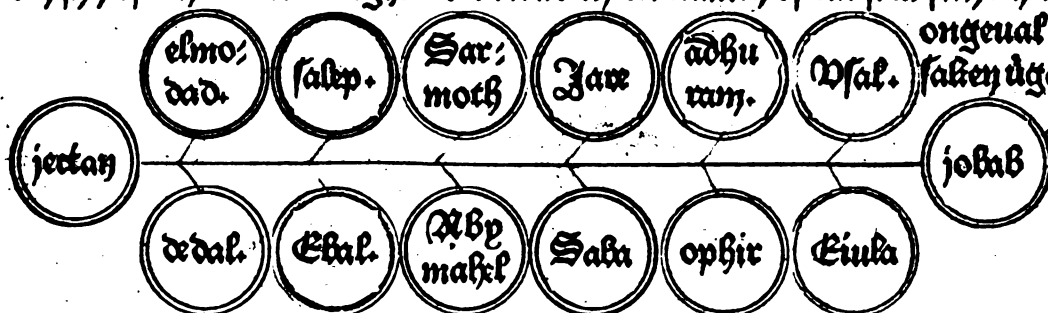 ongeual
elmo:
dad.
salep.
Sar:
moth
Jare
adhu
ram.
Vsal.
salien
jectan
jobab
dedal.
Ebal.
Aby
mahel
Saba
ophir
Eiula